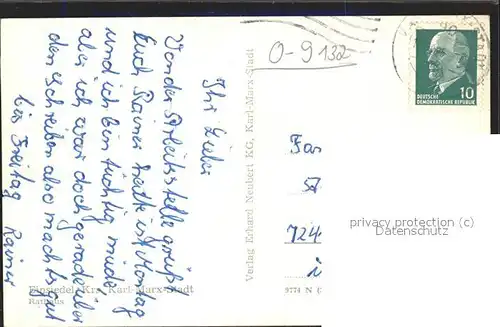 Ihr Lieben
Von der Arbeitsstelle grüßt
Euch Rainer hatte ist Montag
und ich bin tüchtig müde
aber ich war doch gerade über
den schreiben also machts gut
bis Freitag Rainer
Einsiedel, Krs. Karl-Marx-Stadt
Rathaus
Verlag Erhard Neubert KG, Karl-Marx-Stadt
O-9132
10
DEUTSCHE
DEMOKRATISCHE REPUBLIK
Fam
57
724
privacy protection (c)
Datenschutz
9774 N